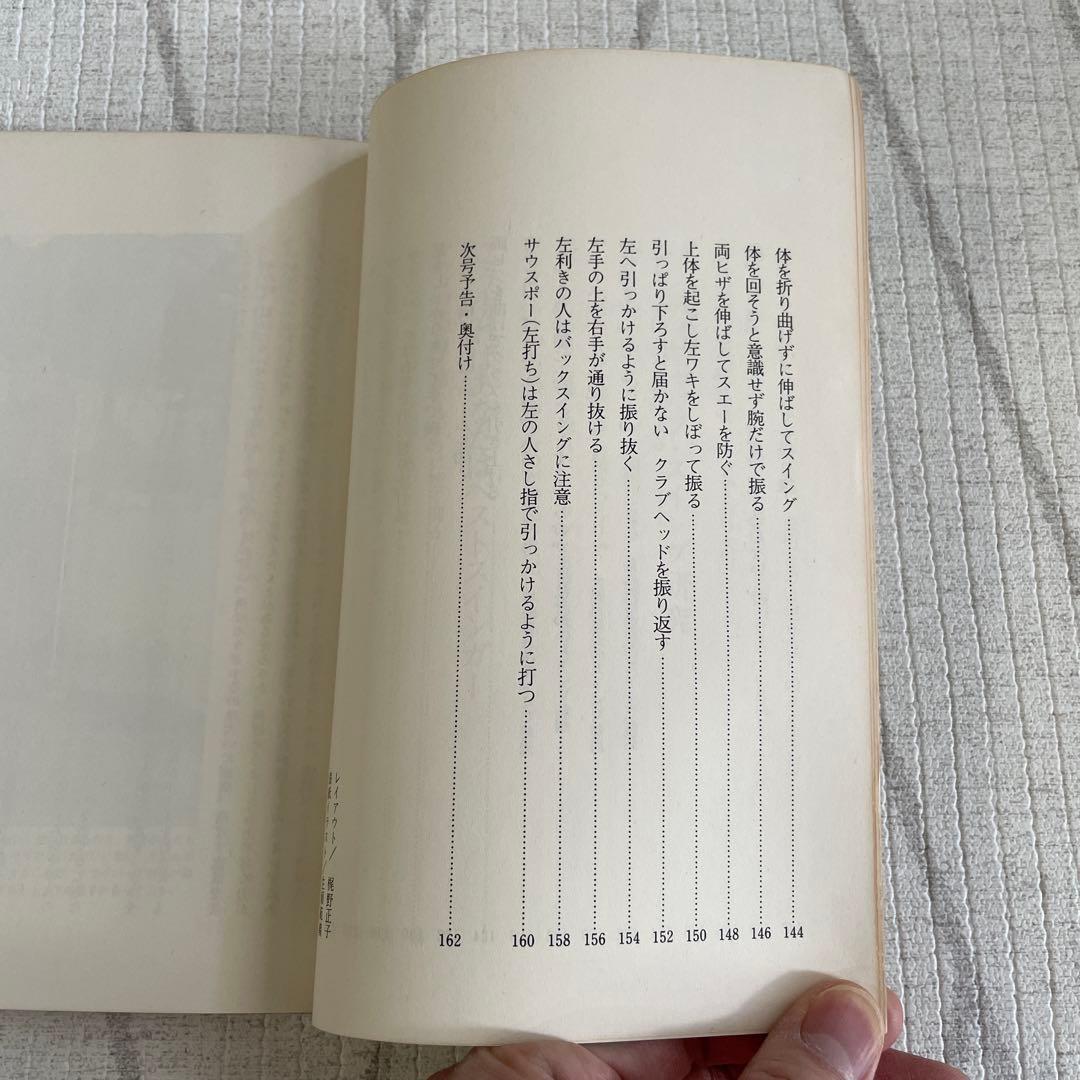 体を折り曲げずに伸ばしてスイング……144
体を回そうと意識せず腕だけで振る……146
両ヒザを伸ばしてスエーを防ぐ……148
上体を起こし左ワキをしぼって振る……150
引っぱり下ろすと届かない　クラブヘッドを振り返す……152
左へ引っかけるように振り抜く……154
左手の上を右手が通り抜ける……156
左利きの人はバックスイングに注意……158
サウスポー(左打ち)は左の人さし指で引っかけるように打つ……160
次号予告・奥付け……162
レイアウト/梶野正子